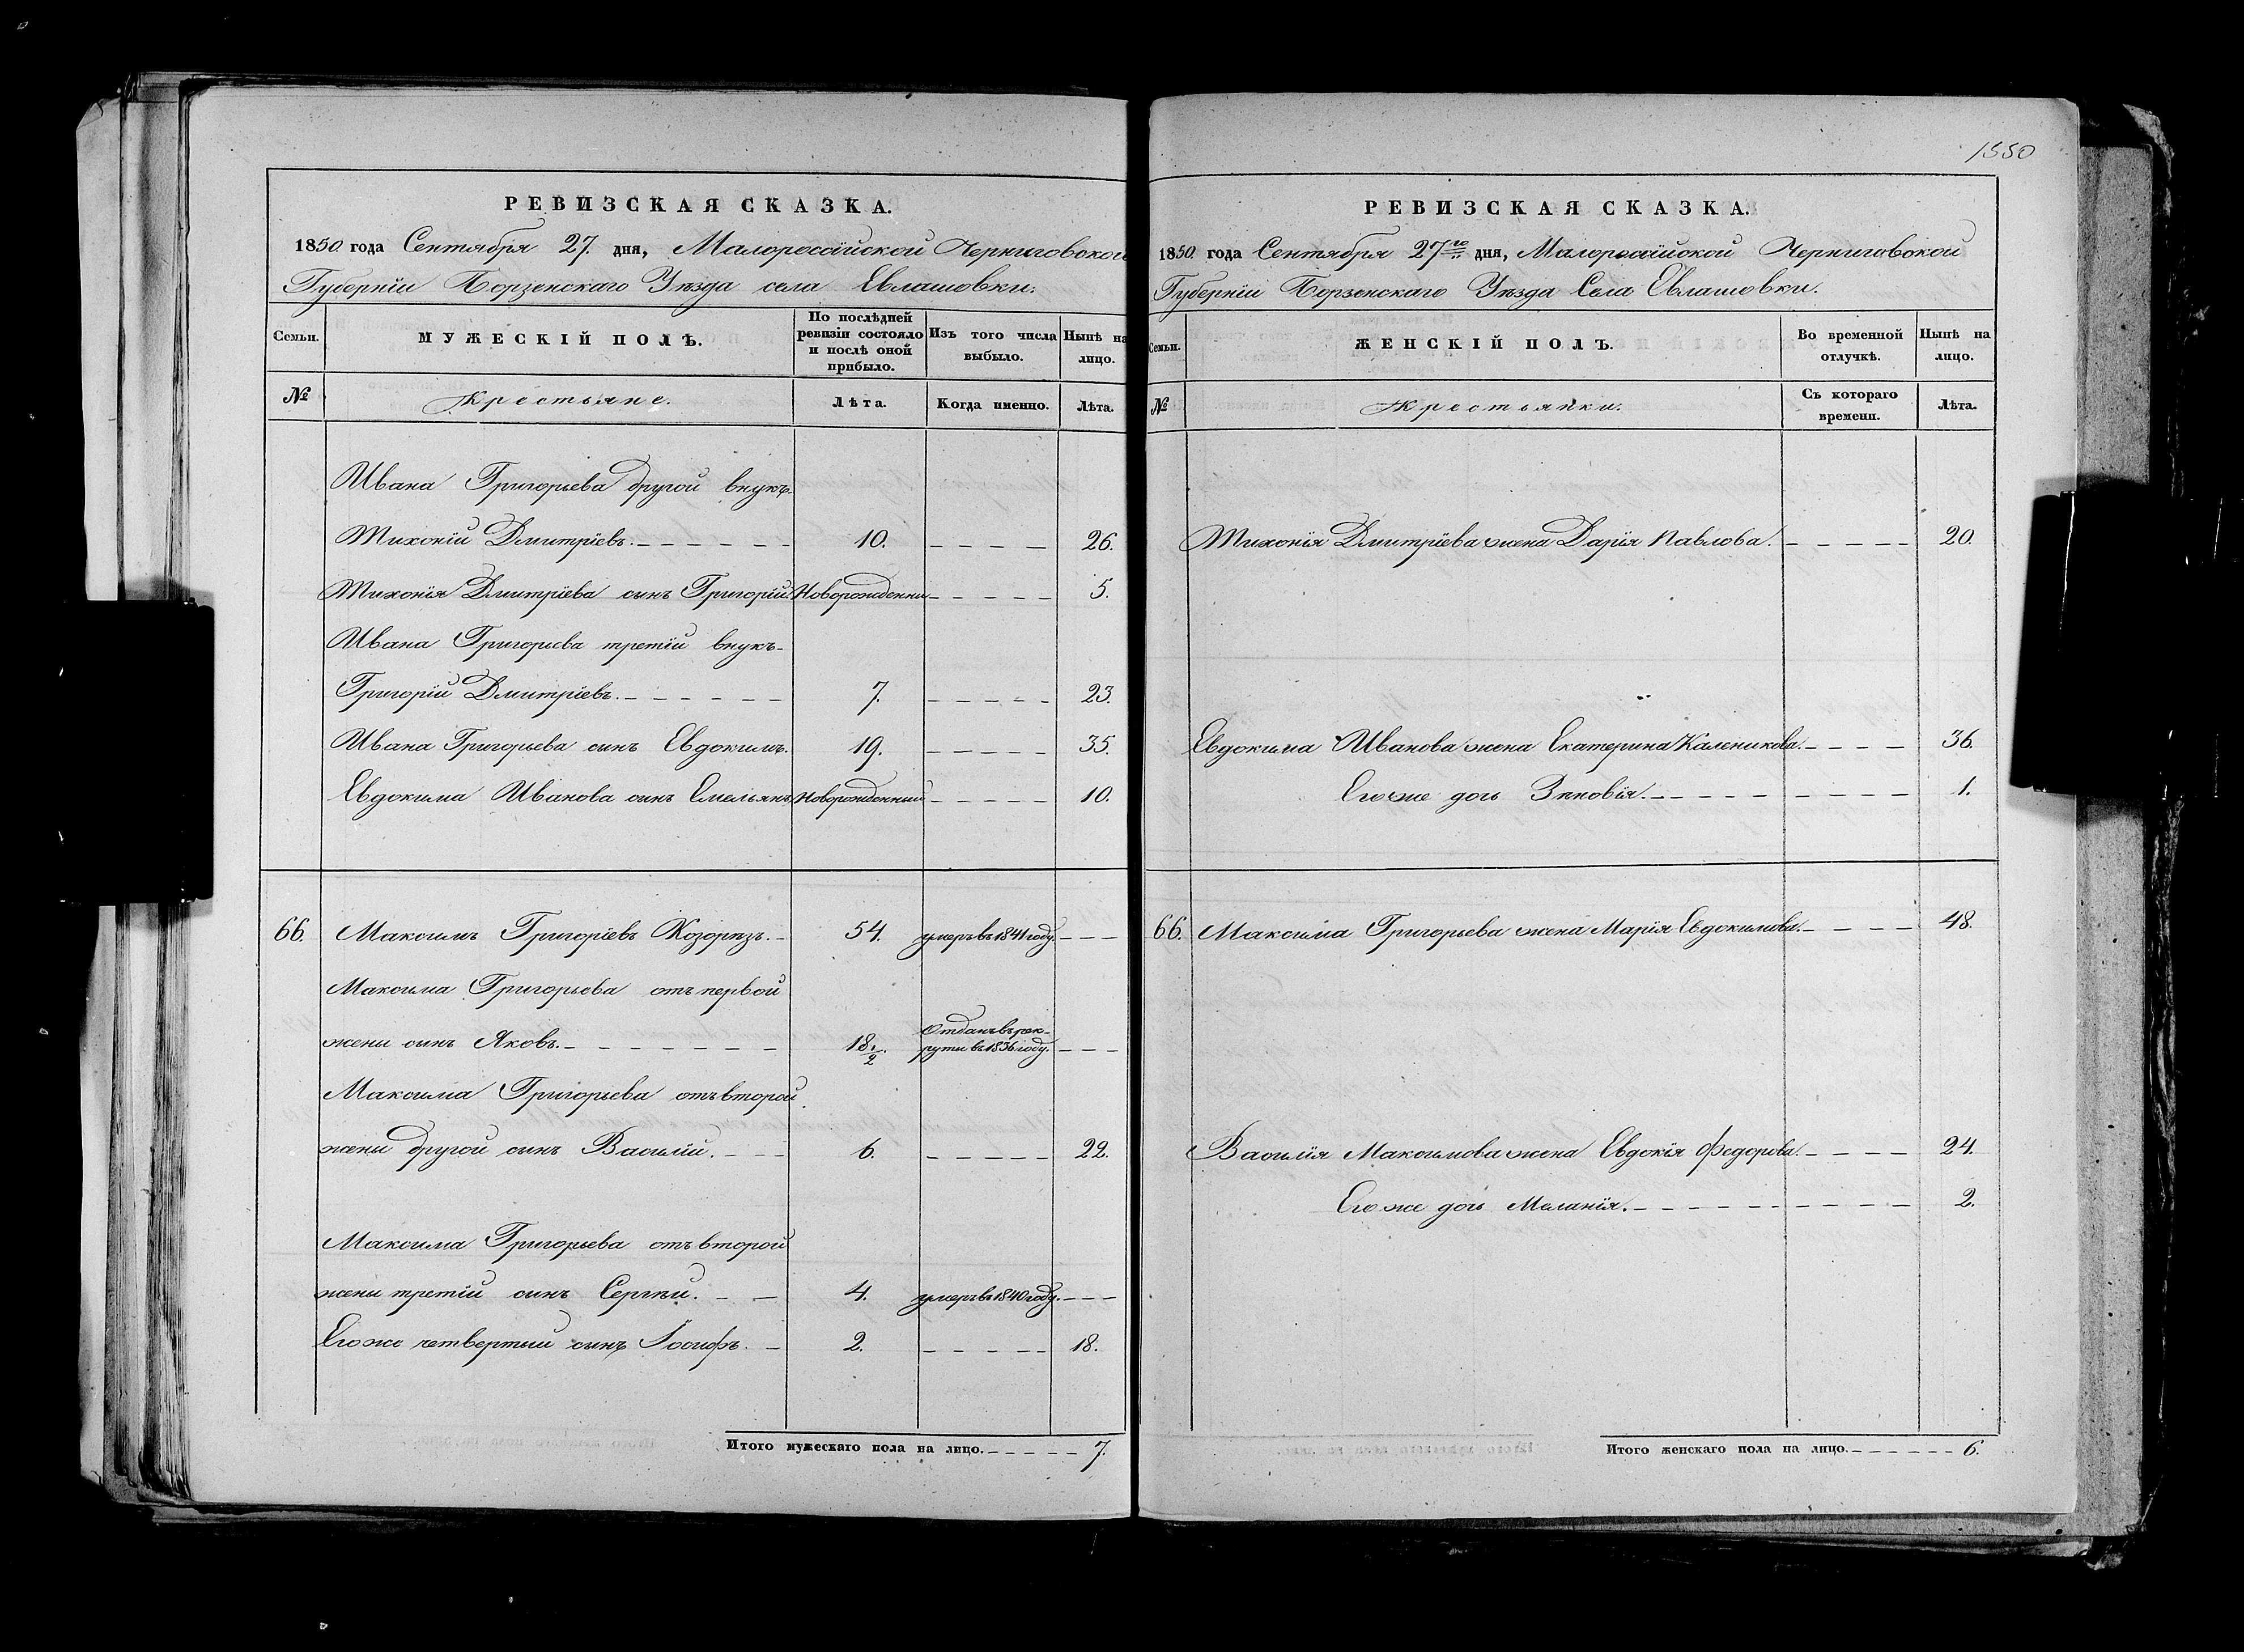 РЕВИЗСКАЯ СКАЗКА.
1850 года Сентября 27. дня, Малороссійской Черниговской
Губерніи Борзенскаго Уѣзда села Евлашовки.
Семьи.
МУЖЕСКІЙ ПОЛЪ.
По послѣдней ревизіи состояло и послѣ оной прибыло.
Изъ того числа выбыло.
Нынѣ на лицо.
№
Крестьяне.
Лѣта.
Когда именно.
Лѣта.
Ивана Григорьева другой внукъ
Тихоній Дмитріевъ. 10. 26.
Тихонія Дмитріева сынъ Григорій. Новорожденны 5.
Ивана Григорьева третій внукъ
Григорій Дмитріевъ. 7. 23.
Ивана Григорьева сынъ Евдокимъ. 19. 35.
Евдокима Иванова сынъ Емельянъ. Новорожденный 10.
66. Максимъ Григоріевъ Козорѣзъ. 54. умеръ въ 1841 году.
Максима Григорьева отъ первой
жены сынъ Яковъ. 18 1/2. Отданъ въ рек-
руты въ 1836 году.
Максима Григорьева отъ второй
жены другой сынъ Василій. 6. 22.
Максима Григорьева отъ второй
жены третій сынъ Сергѣй. 4. умеръ въ 1840 году.
Его же четвертый сынъ Іосифъ. 2. 18.
Итого мужескаго пола на лицо. 7.
1550
РЕВИЗСКАЯ СКАЗКА.
1850 года Сентября 27го дня, Малороссійской Черниговской
Губерніи Борзенскаго Уѣзда Села Евлашовки.
Семьи.
ЖЕНСКІЙ ПОЛЪ.
Во временной отлучкѣ.
Нынѣ на лицо.
№
Крестьянки.
Съ котораго времени.
Лѣта.
Тихонія Дмитріева жена Дарія Павлова. 20.
Евдокима Иванова жена Екатерина Каленикова. 36.
Его же дочь Зиновія. 1.
66. Максима Григорьева жена Марія Евдокимова. 48.
Василія Максимова жена Евдокія Федорова. 24.
Его же дочь Меланія. 2.
Итого женскаго пола на лицо. 6.